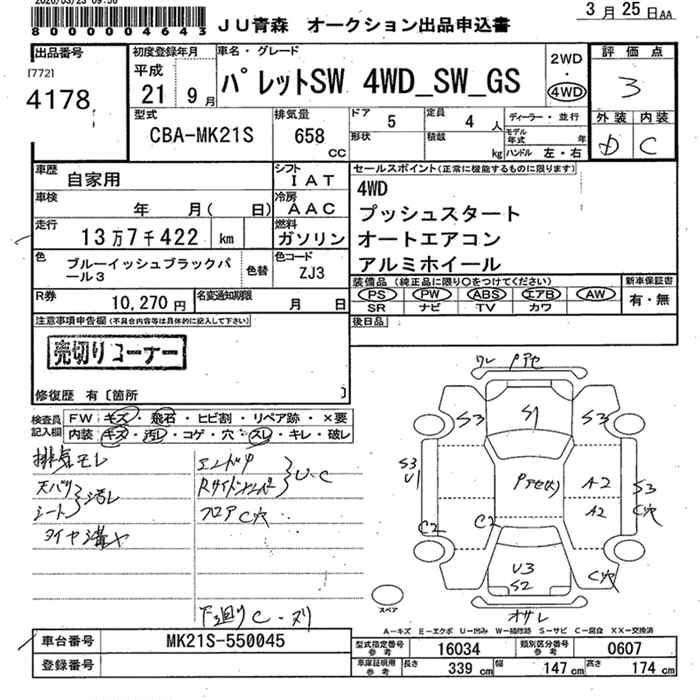 2026/03/23 09:56
8000004643
JU青森 オークション出品申込書
3月25日AA
出品番号
[772]
4178
初度登録年月
平成
21 9月
車名・グレード
パレットSW 4WD_SW_GS
2WD
・
4WD
評価点
3
外装 内装
D C
型式
CBA-MK21S
排気量
658
CC
ドア
5
形状
定員
4 人
積載
kg
ディーラー・並行
モデル年式 年
ハンドル 左・右
車歴
自家用
シフト
IAT
車検
年 月( 日)
冷房
AAC
走行
13万7千422 km
燃料
ガソリン
色
ブルーイッシュブラックパール3
色替
色コード
ZJ3
R券
10,270円
名変通知期限
月 日
セールスポイント(正常に機能するものに限ります)
4WD
プッシュスタート
オートエアコン
アルミホイール
装備品 (純正品に限り○をつけてください)
PS PW ABS エアB AW
SR ナビ TV カワ
新車保証書
有・無
後日品
注意事項申告欄(不具合内容等は具体的に記入して下さい)
売切りコーナー
修復歴 有〔箇所 〕
検査員記入欄
FW キズ・飛石・ヒビ割・リペア跡・×要
内装 キズ・汚レ・コゲ・穴・スレ・キレ・破レ
排気モレ
天バリ
シート
汚レ
タイヤ溝ヤ
エンドP
Rサイドメンバー
U・C
フロアC穴
下回りC・ヌリ
ワレ Pアセ
S3 S1 S3
S3
U1
Pアセ(大)
A2
A2
S3
C穴
C2 C2
U3
S2
C穴
オサレ
スペア
A-キズ E-エクボ U-凹み W-補修跡 S-サビ C-腐食 XX-交換済
車台番号
MK21S-550045
登録番号
型式指定番号
参考
16034
類別区分番号
参考
0607
車庫証明用
参考
長さ 339 cm
幅 147 cm
高さ 174 cm